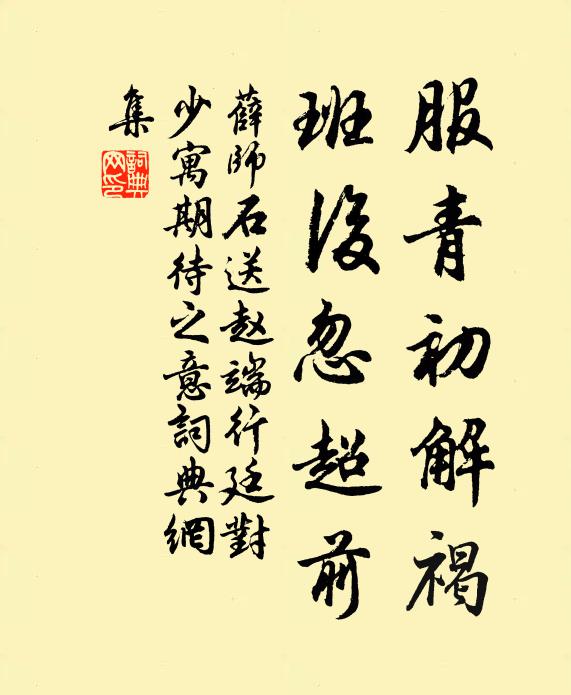 服青初解褐
班後忽超前
薛師石送赵端行廷對
少寓期待之意詞典網
集
詞典網印